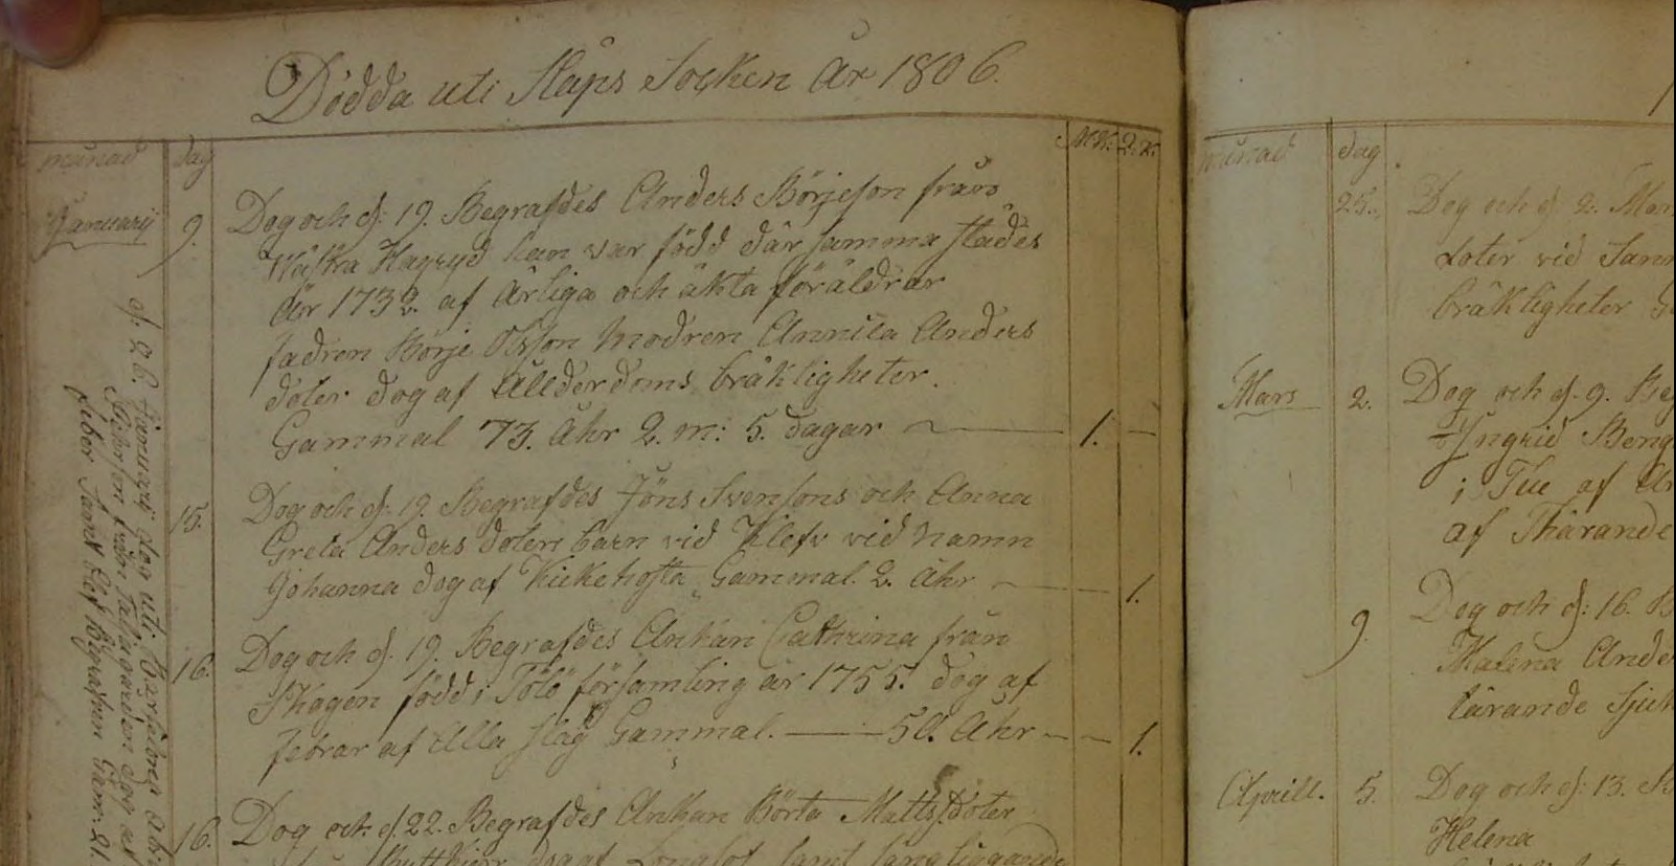 Dödda uti Släps Socken År 1806.
månad dag M.K. Q.K.
Januarij 9. Dog och d: 19. Begrafdes Anders Börjeson från
Wästra Hagryd han var född där samma städes
År 1732. af Ärliga och äkta föräldrar
fadren Börje Olsson Modren Annica Anders
doter dog af Ållderdoms bräkligheter.
Gammal 73. Åhr 2. m: 5. dagar 1. —
15. Dog och d: 19. Begrafdes Jöns Svensons och Anna
Greta Anders doters barn vid Klefv vid namn
Johanna dog af Kickhosta Gammal 2. Åhr 1.
16. Dog och d. 19. Begrafdes Änkan Cathrina från
Skogen född i Tölö församling år 1755. dog af
febrar af Alla slag Gammal. 50. Åhr 1.
16. Dog och d. 22. Begrafdes Änkan Börta Matts Doter
dog af samt långliggande
d: 26. Januarij dog uti
från dog af
feber samt blef Begrafven Gam: 21.
månad dag
25. Dog och d 2. Mar
doter vid Sann
bräkligheter
Mars 2. Dog och d. 9. Be
Ingrid Beng
i Tue af
af Thärande
9. Dog och d: 16. B
Malena Ande
tärande Sjuk
Aprill. 5. Dog och d: 13. B
Helena